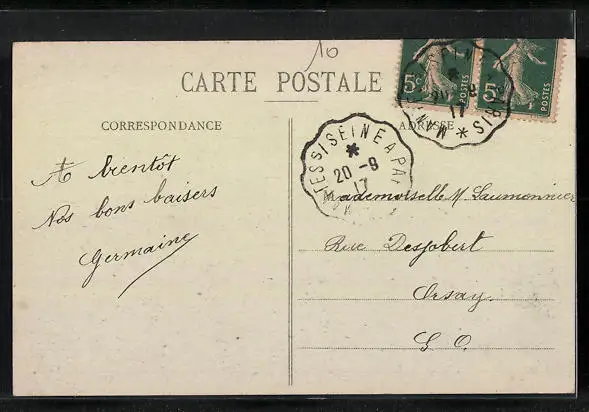 10
CARTE POSTALE
5c POSTES
5c POSTES
CORRESPONDANCE
ADRESSE
MANTES SISEINE A PARIS
20-9
17
A bientôt
Nos bons baisers
Germaine
Mademoiselle M. Saumonnier
Rue Desjobert
Orsay.
S O.